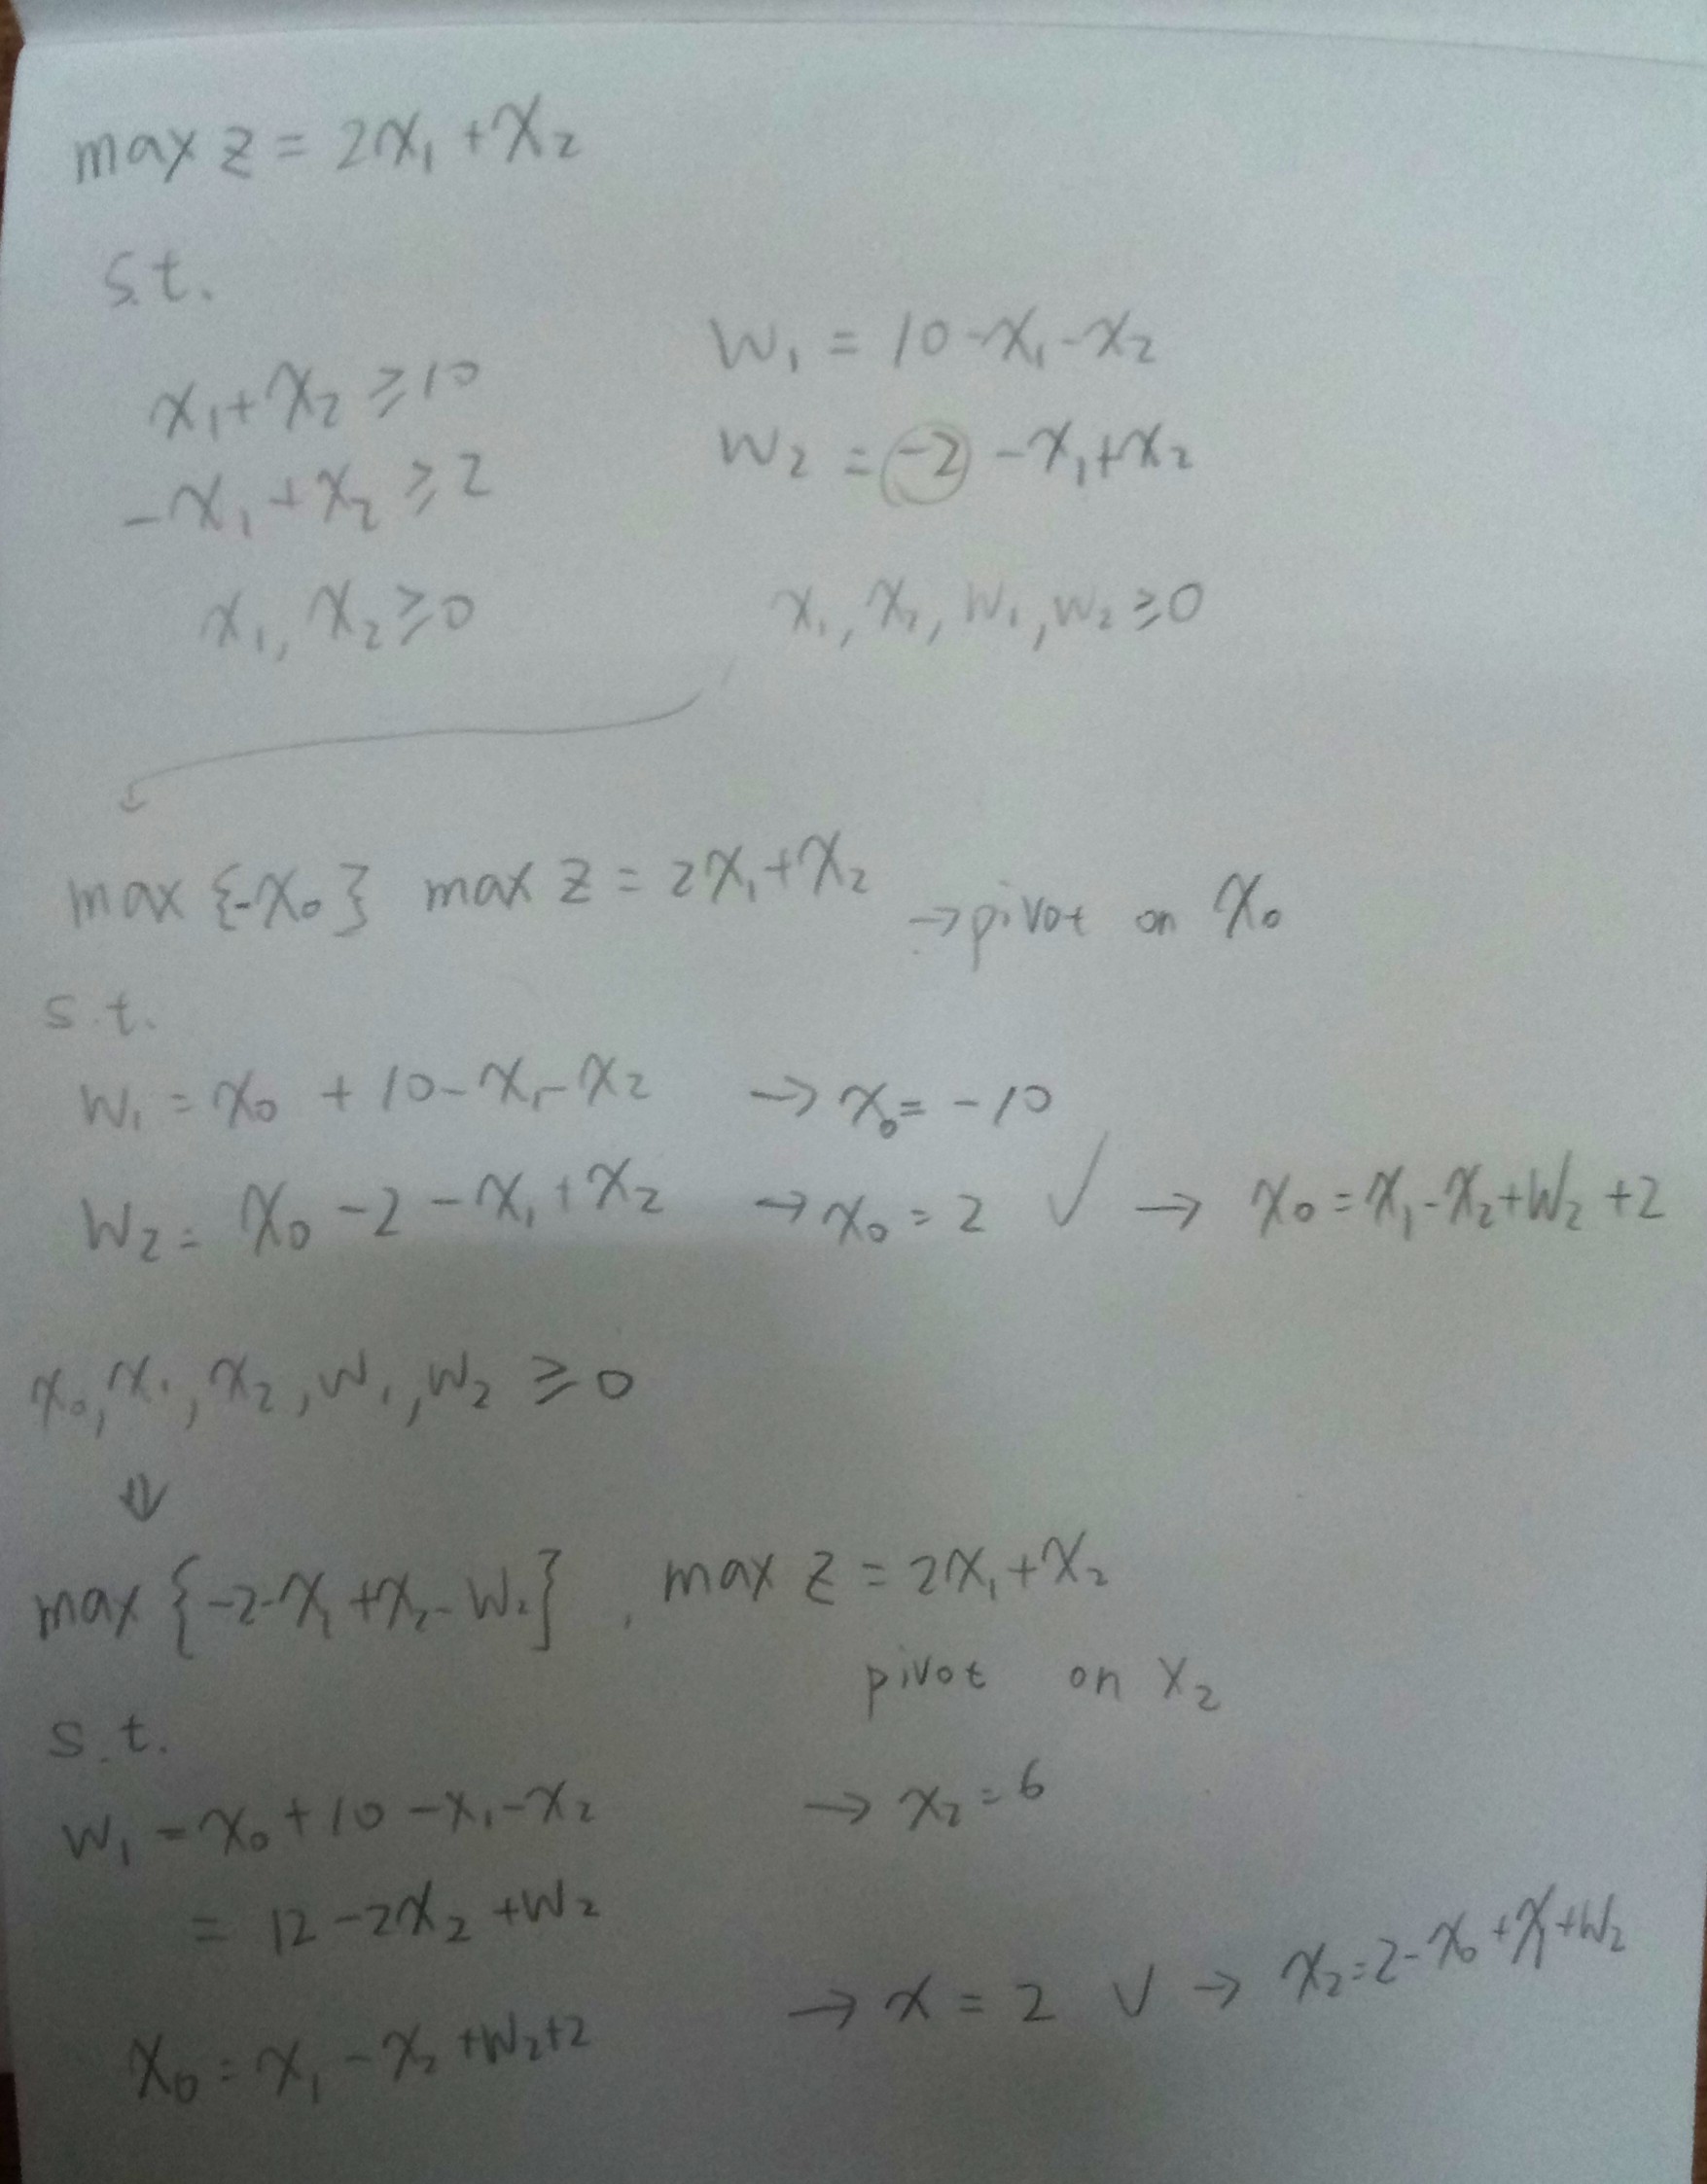 max z = 2x₁ + x₂
s.t.
x₁ + x₂ ≥ 10
-x₁ + x₂ ≥ 2
x₁, x₂ ≥ 0
w₁ = 10 - x₁ - x₂
w₂ = -2 - x₁ + x₂
x₁, x₂, w₁, w₂ ≥ 0
max {-x₀} max z = 2x₁ + x₂ → pivot on x₀
s.t.
w₁ = x₀ + 10 - x₁ - x₂ → x₀ = -10
w₂ = x₀ - 2 - x₁ + x₂ → x₀ = 2 ✓ → x₀ = x₁ - x₂ + w₂ + 2
x₀, x₁, x₂, w₁, w₂ ≥ 0
⇓
max {-2 - x₁ + x₂ - w₂}, max z = 2x₁ + x₂
pivot on x₂
s.t.
w₁ = x₀ + 10 - x₁ - x₂ → x₂ = 6
= 12 - 2x₂ + w₂
x₀ = x₁ - x₂ + w₂ + 2 → x = 2 ✓ → x₂ = 2 - x₀ + x₁ + w₂